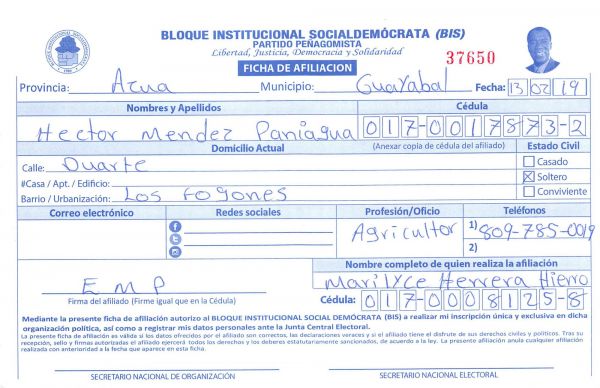 BLOQUE INSTITUCIONAL SOCIALDEMÓCRATA (BIS)
PARTIDO PEÑAGOMISTA
Libertad, Justicia, Democracia y Solidaridad
37650
FICHA DE AFILIACION
Provincia: Azua Municipio: Guayabal Fecha: 13 02 19
Nombres y Apellidos Cédula
Hector Mendez Paniagua 017-0017873-2
Domicilio Actual (Anexar copia de cédula del afiliado) Estado Civil
Calle: Duarte Casado
#Casa / Apt. / Edificio: Soltero
Barrio / Urbanización: Los Fogones Conviviente
Correo electrónico Redes sociales Profesión/Oficio Teléfonos
Agricultor 1) 809-785-0019
2)
Nombre completo de quien realiza la afiliación
EMP Marilyce Herrera Hierro
Firma del afiliado (Firme igual que en la Cédula) Cédula: 017-0008125-8
Mediante la presente ficha de afiliación autorizo al BLOQUE INSTITUCIONAL SOCIAL DEMÓCRATA (BIS) a realizar mi inscripción única y exclusiva en dicha
organización política, así como a registrar mis datos personales ante la Junta Central Electoral.
La presente ficha de afiliación es válida si los datos ofrecidos por el afiliado son correctos, las declaraciones veraces y si el afiliado tiene el disfrute de sus derechos civiles y políticos. Tras su
recepción, sello y firmas autorizadas el afiliado ejercerá todos los derechos y los deberes estatutariamente sancionados, de acuerdo a la ley. La presente afiliación anula cualquier afiliación
realizada con anterioridad a la fecha que aparece en esta ficha.
SECRETARIO NACIONAL DE ORGANIZACIÓN SECRETARIO NACIONAL ELECTORAL